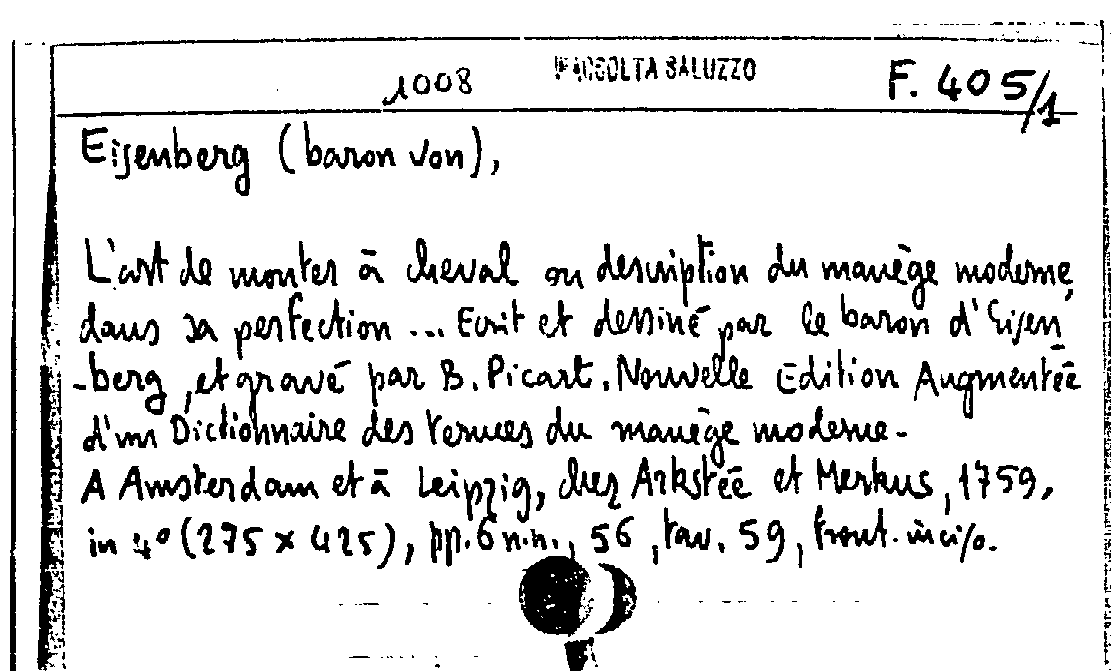 1008 RACCOLTA SALUZZO F. 405/1
Eisenberg (baron von),
L'art de monter à cheval ou description du manège moderne,
dans sa perfection ... Ecrit et dessiné par le baron d'Eisen
-berg, et gravé par B. Picart. Nouvelle Edition Augmentée
d'un Dictionnaire des termes du manège moderne.
A Amsterdam et à Leipzig, chez Arkstée et Merkus, 1759,
in 4° (275 x 425), pp. 6 n.n., 56, tav. 59, front. inciso.